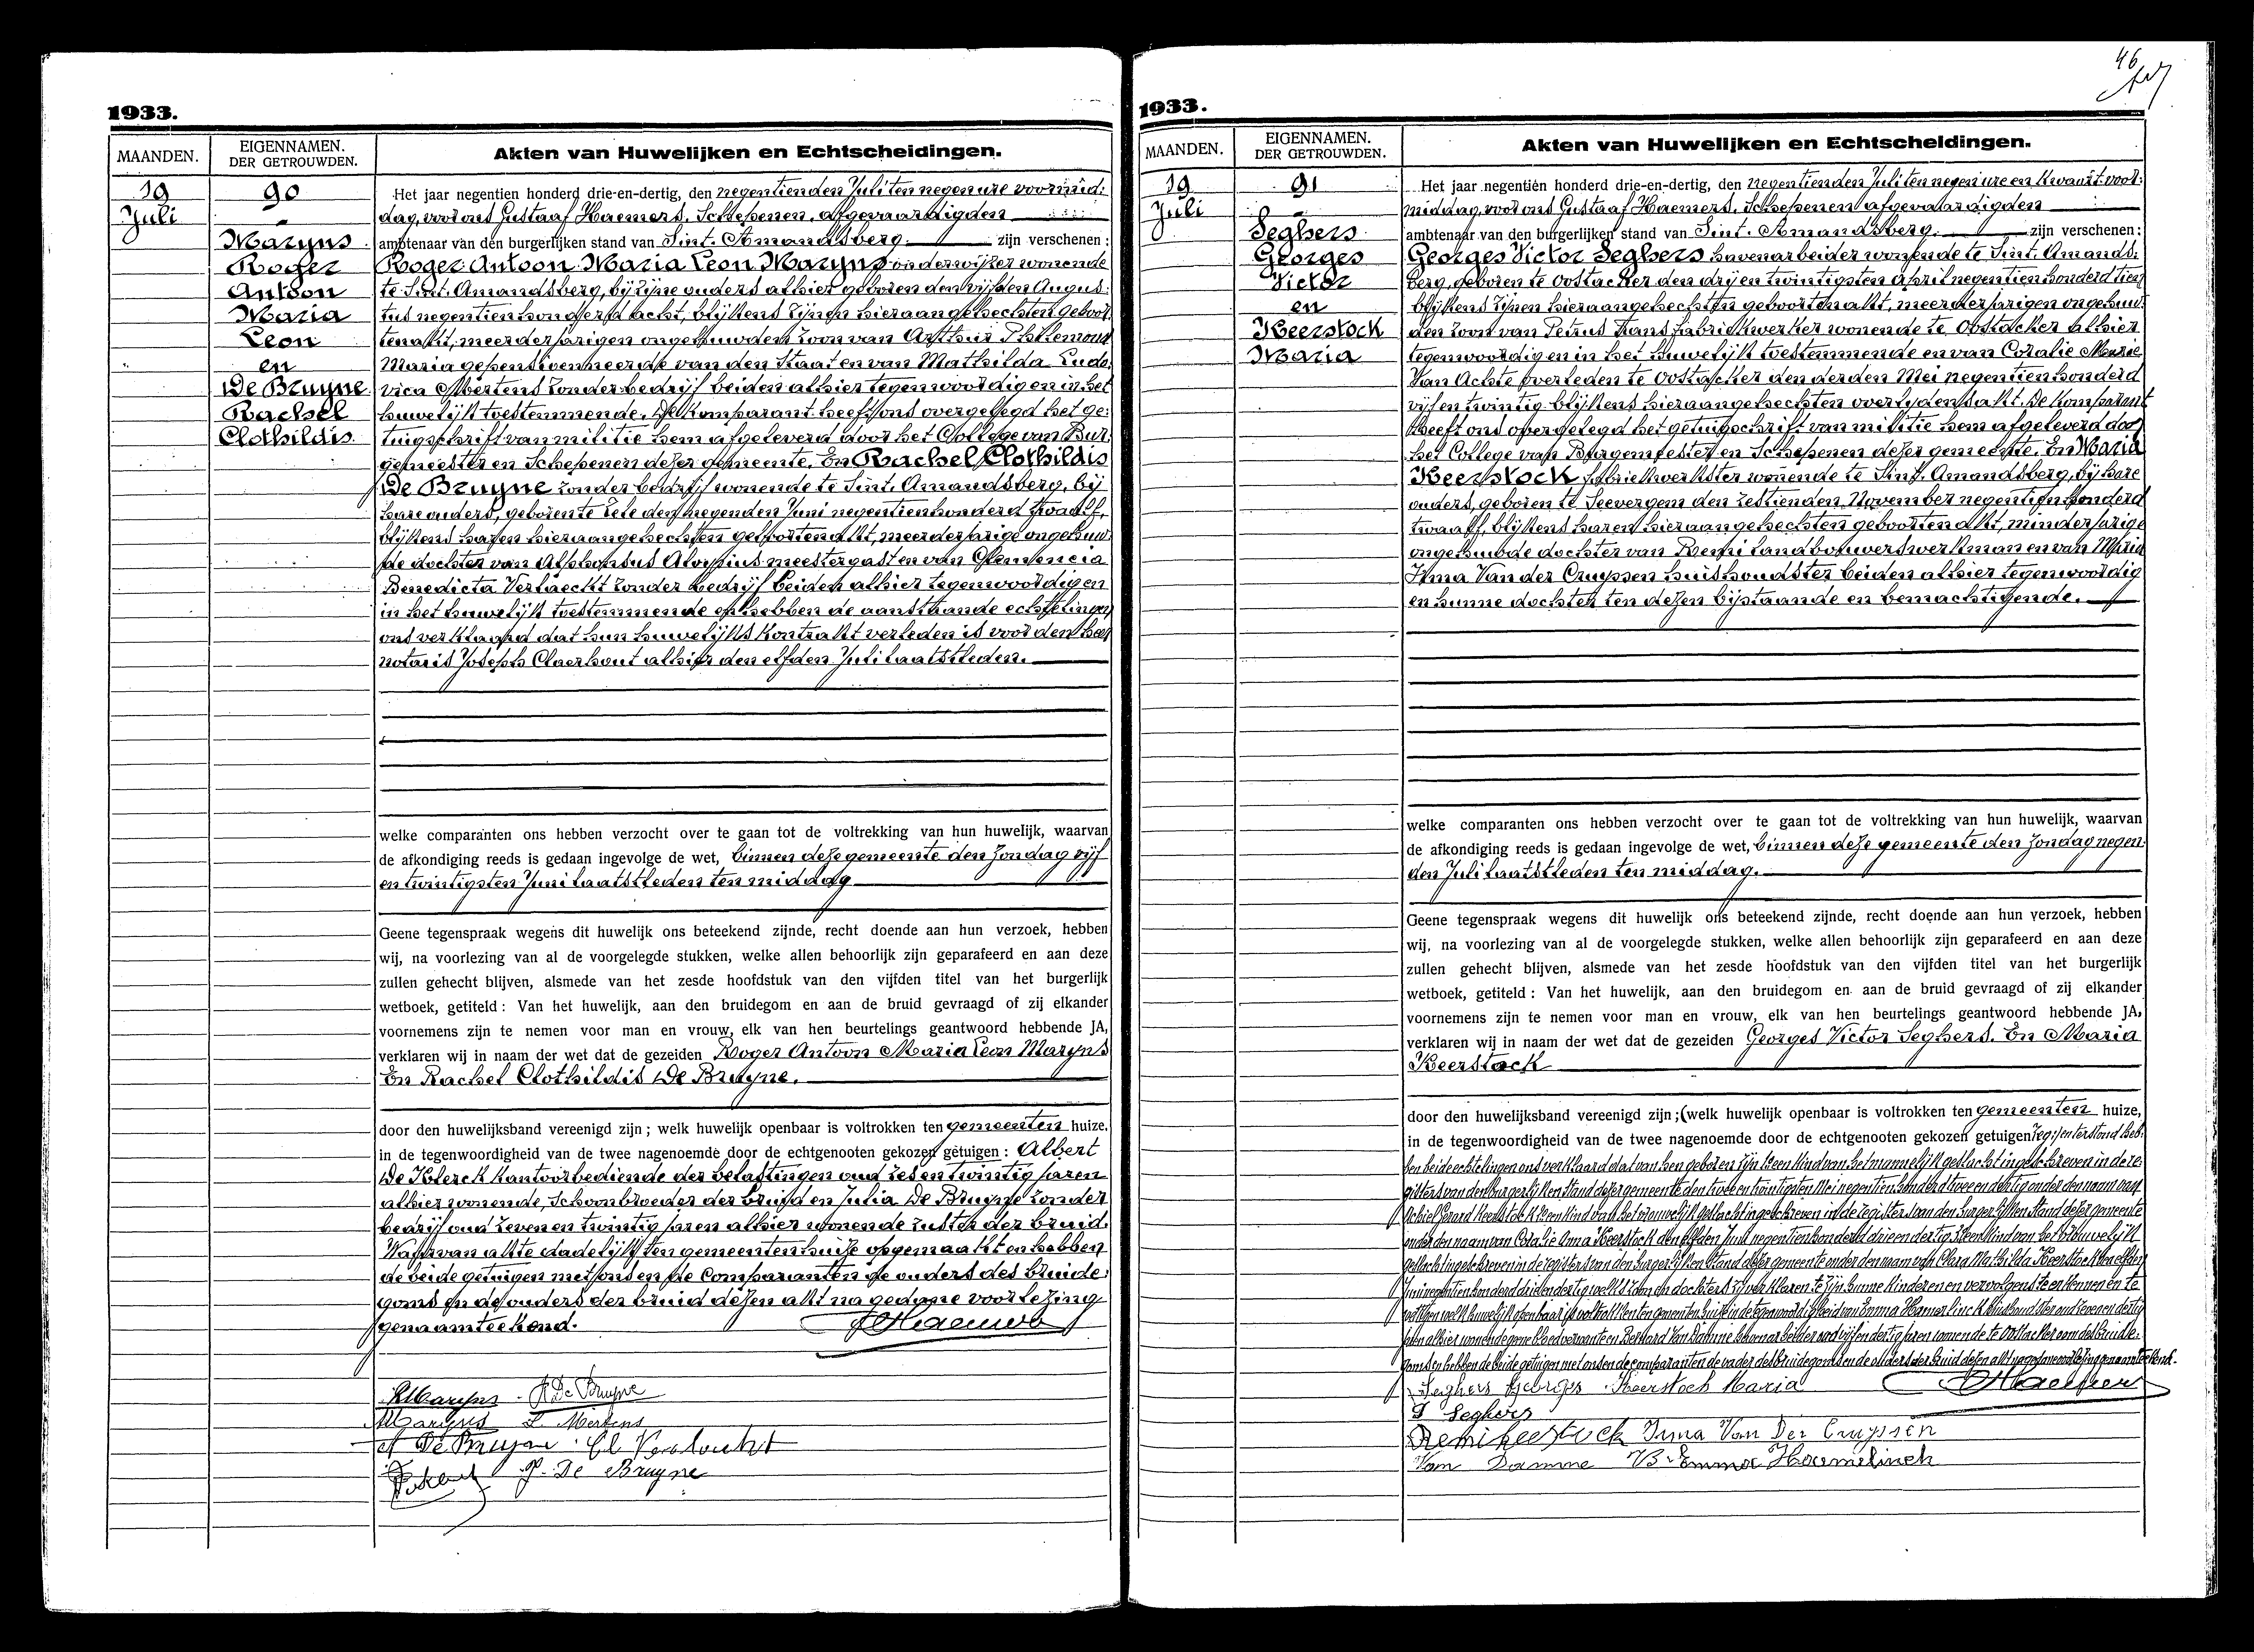 1933.
MAANDEN.
EIGENNAMEN.
DER GETROUWDEN.
Akten van Huwelijken en Echtscheidingen.
19
Juli
90
Maryns
Roger
Antoon
Maria
Leon
en
De Bruyne
Rachel
Clothildis
Het jaar negentien honderd drie-en-dertig, den negentienden Juli ten negen ure voormid:
dag, voor ons Gustaaf Haemers, Schepenen, afgevaardigden
ambtenaar van den burgerlijken stand van Sint-Amandsberg. zijn verschenen:
Roger Antoon Maria Leon Maryns onderwijzer wonende
te Sint-Amandsberg, bij zijne ouders alhier geboren den vijfden Augus:
tus negentien honderd acht, blijkens zijnen hieraangehechten geboor
tenakt, meerderjarigen ongehuwden zoon van Arthur Philemond
Maria gepensioenneerde van den Staat en van Mathilda Ludo
vica Mertens zonder bedrijf beiden alhier tegenwoordig en in het
huwelijk toestemmende. De komparant heeft ons overgelegd het ge:
tuigschrift van militie hem afgeleverd door het College van Bur
gemeester en Schepenen dezer gemeente. En Rachel Clothildis
De Bruyne zonder bedrijf wonende te Sint-Amandsberg, bij
hare ouders, geboren te Zele den negenden Juni negentien honderd twaalf,
blijkens haren hieraangehechten geboortenakt, meerderjarige ongehuw
de dochter van Alphonsus Aloysius meestergast en van Clemencia
Benedicta Vertaeckt zonder bedrijf beiden alhier tegenwoordig en
in het huwelijk toestemmende en hebben de aanstaande echtelingen
ons verklaard dat hun huwelijks kontrakt verleden is voor den heer
notaris Joseph Claerhout alhier den elfden Juli laatstleden.
welke comparanten ons hebben verzocht over te gaan tot de voltrekking van hun huwelijk, waarvan
de afkondiging reeds is gedaan ingevolge de wet, binnen deze gemeente den Zondag vijf
en twintigsten Juni laatstleden ten middag
Geene tegenspraak wegens dit huwelijk ons beteekend zijnde, recht doende aan hun verzoek, hebben
wij, na voorlezing van al de voorgelegde stukken, welke allen behoorlijk zijn geparafeerd en aan deze
zullen gehecht blijven, alsmede van het zesde hoofdstuk van den vijfden titel van het burgerlijk
wetboek, getiteld: Van het huwelijk, aan den bruidegom en aan de bruid gevraagd of zij elkander
voornemens zijn te nemen voor man en vrouw, elk van hen beurtelings geantwoord hebbende JA,
verklaren wij in naam der wet dat de gezeiden Roger Antoon Maria Leon Maryns
En Rachel Clothildis De Bruyne.
door den huwelijksband vereenigd zijn; welk huwelijk openbaar is voltrokken ten gemeenten huize,
in de tegenwoordigheid van de twee nagenoemde door de echtgenooten gekozen getuigen: Albert
De Klerck kantoorbediende der belastingen oud zes en twintig jaren
alhier wonende, schoonbroeder der bruid en Julia De Bruyne zonder
bedrijf oud zeven en twintig jaren alhier wonende zuster der bruid.
Waarvan akte dadelijk ten gemeentenhuize opgemaakt en hebben
de beide getuigen met ons en de Comparanten de ouders des bruide:
goms en de ouders der bruid dezen akt na gedane voorlezing
genaamteekend. Haemers
RMaryns R De Bruyne
AMaryns L. Mertens
A De Bruyne
J. De Bruyne
46
1933.
MAANDEN.
EIGENNAMEN.
DER GETROUWDEN.
Akten van Huwelijken en Echtscheidingen.
19
Juli
91
Seghers
Georges
Victor
en
Keerstock
Maria
Het jaar negentien honderd drie-en-dertig, den negentienden Juli ten negen ure en kwaart voor:
middag, voor ons Gustaaf Haemers, Schepenen afgevaardigden
ambtenaar van den burgerlijken stand van Sint-Amandsberg. zijn verschenen:
Georges Victor Seghers havenarbeider wonende te Sint-Amands:
berg, geboren te Oostacker den drij en twintigsten April negentien honderd tien
blijkens zijnen hieraangehechten geboortenakt, meerderjarigen ongehuw
den zoon van Petrus Frans fabriekwerker wonende te Oostacker alhier
tegenwoordig en in het huwelijk toestemmende en van Coralie Marie
Van Achte overleden te Oostacker den derden Mei negentien honderd
vijf en twintig blijkens hieraangehechten overlydensakt. De komparant
heeft ons overgelegd het getuigschrift van militie hem afgeleverd door
het College van Burgemeester en Schepenen dezer gemeente. En Maria
Keerstock fabriekwerkster wonende te Sint-Amandsberg, bij hare
ouders, geboren te Seevergem den zestienden November negentien honderd
twaalf, blijkens haren hieraangehechten geboortenakt, minderjarige
ongehuwde dochter van Remi landbouwerswerkman en van Maria
Irma Van der Cruyssen huishoudster beiden alhier tegenwoordig
en hunne dochter ten dezen bijstaande en bemachtigende.
welke comparanten ons hebben verzocht over te gaan tot de voltrekking van hun huwelijk, waarvan
de afkondiging reeds is gedaan ingevolge de wet, binnen deze gemeente den Zondag negen
den Juli laatstleden ten middag.
Geene tegenspraak wegens dit huwelijk ons beteekend zijnde, recht doende aan hun verzoek, hebben
wij, na voorlezing van al de voorgelegde stukken, welke allen behoorlijk zijn geparafeerd en aan deze
zullen gehecht blijven, alsmede van het zesde hoofdstuk van den vijfden titel van het burgerlijk
wetboek, getiteld: Van het huwelijk, aan den bruidegom en aan de bruid gevraagd of zij elkander
voornemens zijn te nemen voor man en vrouw, elk van hen beurtelings geantwoord hebbende JA,
verklaren wij in naam der wet dat de gezeiden Georges Victor Seghers. En Maria
Keerstock
door den huwelijksband vereenigd zijn; (welk huwelijk openbaar is voltrokken ten gemeenten huize,
in de tegenwoordigheid van de twee nagenoemde door de echtgenooten gekozen getuigen en terstond heb:
ben beide echtelingen ons verklaard dat van hen geboren zijn 1° een kind van het mannelijk geslacht ingeschreven in de re
gisters van den burgerlijken stand dezer gemeente den twee en twintigsten Mei negentien honderd twee en dertig onder den naam van
Gerard Keerstock 2° een kind van het vrouwelijk geslacht ingeschreven in de registers van den burgerlijken stand dezer gemeente
onder den naam van Coralie Anna Keerstock den elfden Juni negentien honderd drie en dertig 3° een kind van het vrouwelijk
geslacht ingeschreven in de registers van den burgerlijken stand dezer gemeente onder den naam van Clara Mathilda Keerstock den elfden
Juni negentien honderd drie en dertig welke zoon en dochters zij verklaren te zijn hunne kinderen en vervolgens te erkennen en te
wettigen welk huwelijk openbaar is voltrokken ten gemeenten huize in de tegenwoordigheid van Emma Hamerlinck huishoudster oud zeven en dertig
jaren alhier wonende geene bloedverwante en Bernard Van Damme havenarbeider oud vijf en dertig jaren wonende te Oostacker oom des bruide:
goms en hebben de beide getuigen met ons en de comparanten de vader des bruidegoms en de ouders der bruid dezen akt na gedane voorlezing genaamteekend.
Seghers Georges Keerstock Maria Haemers
P Seghers
Remi Keerstock Irma Van Der Cruyssen
Van Damme B. Emma Haemelinck